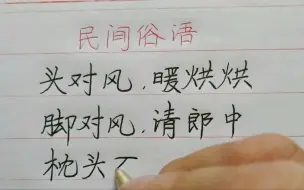 民间俗语
头对风,暖烘烘
脚对风,请郎中
枕头不